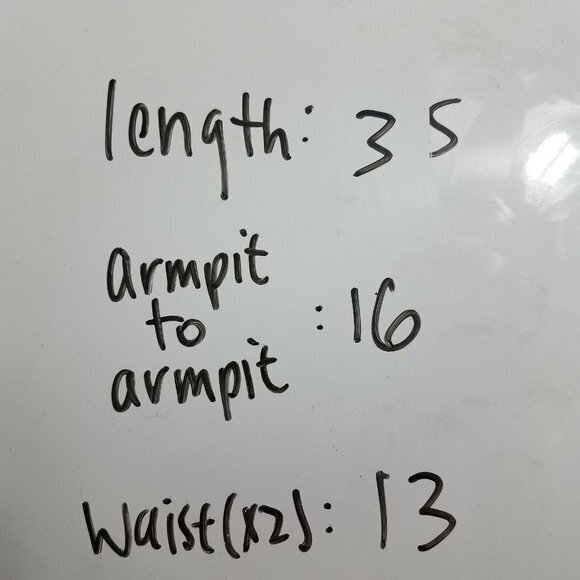 length: 35
armpit
to
armpit
: 16
Waist(x2): 13